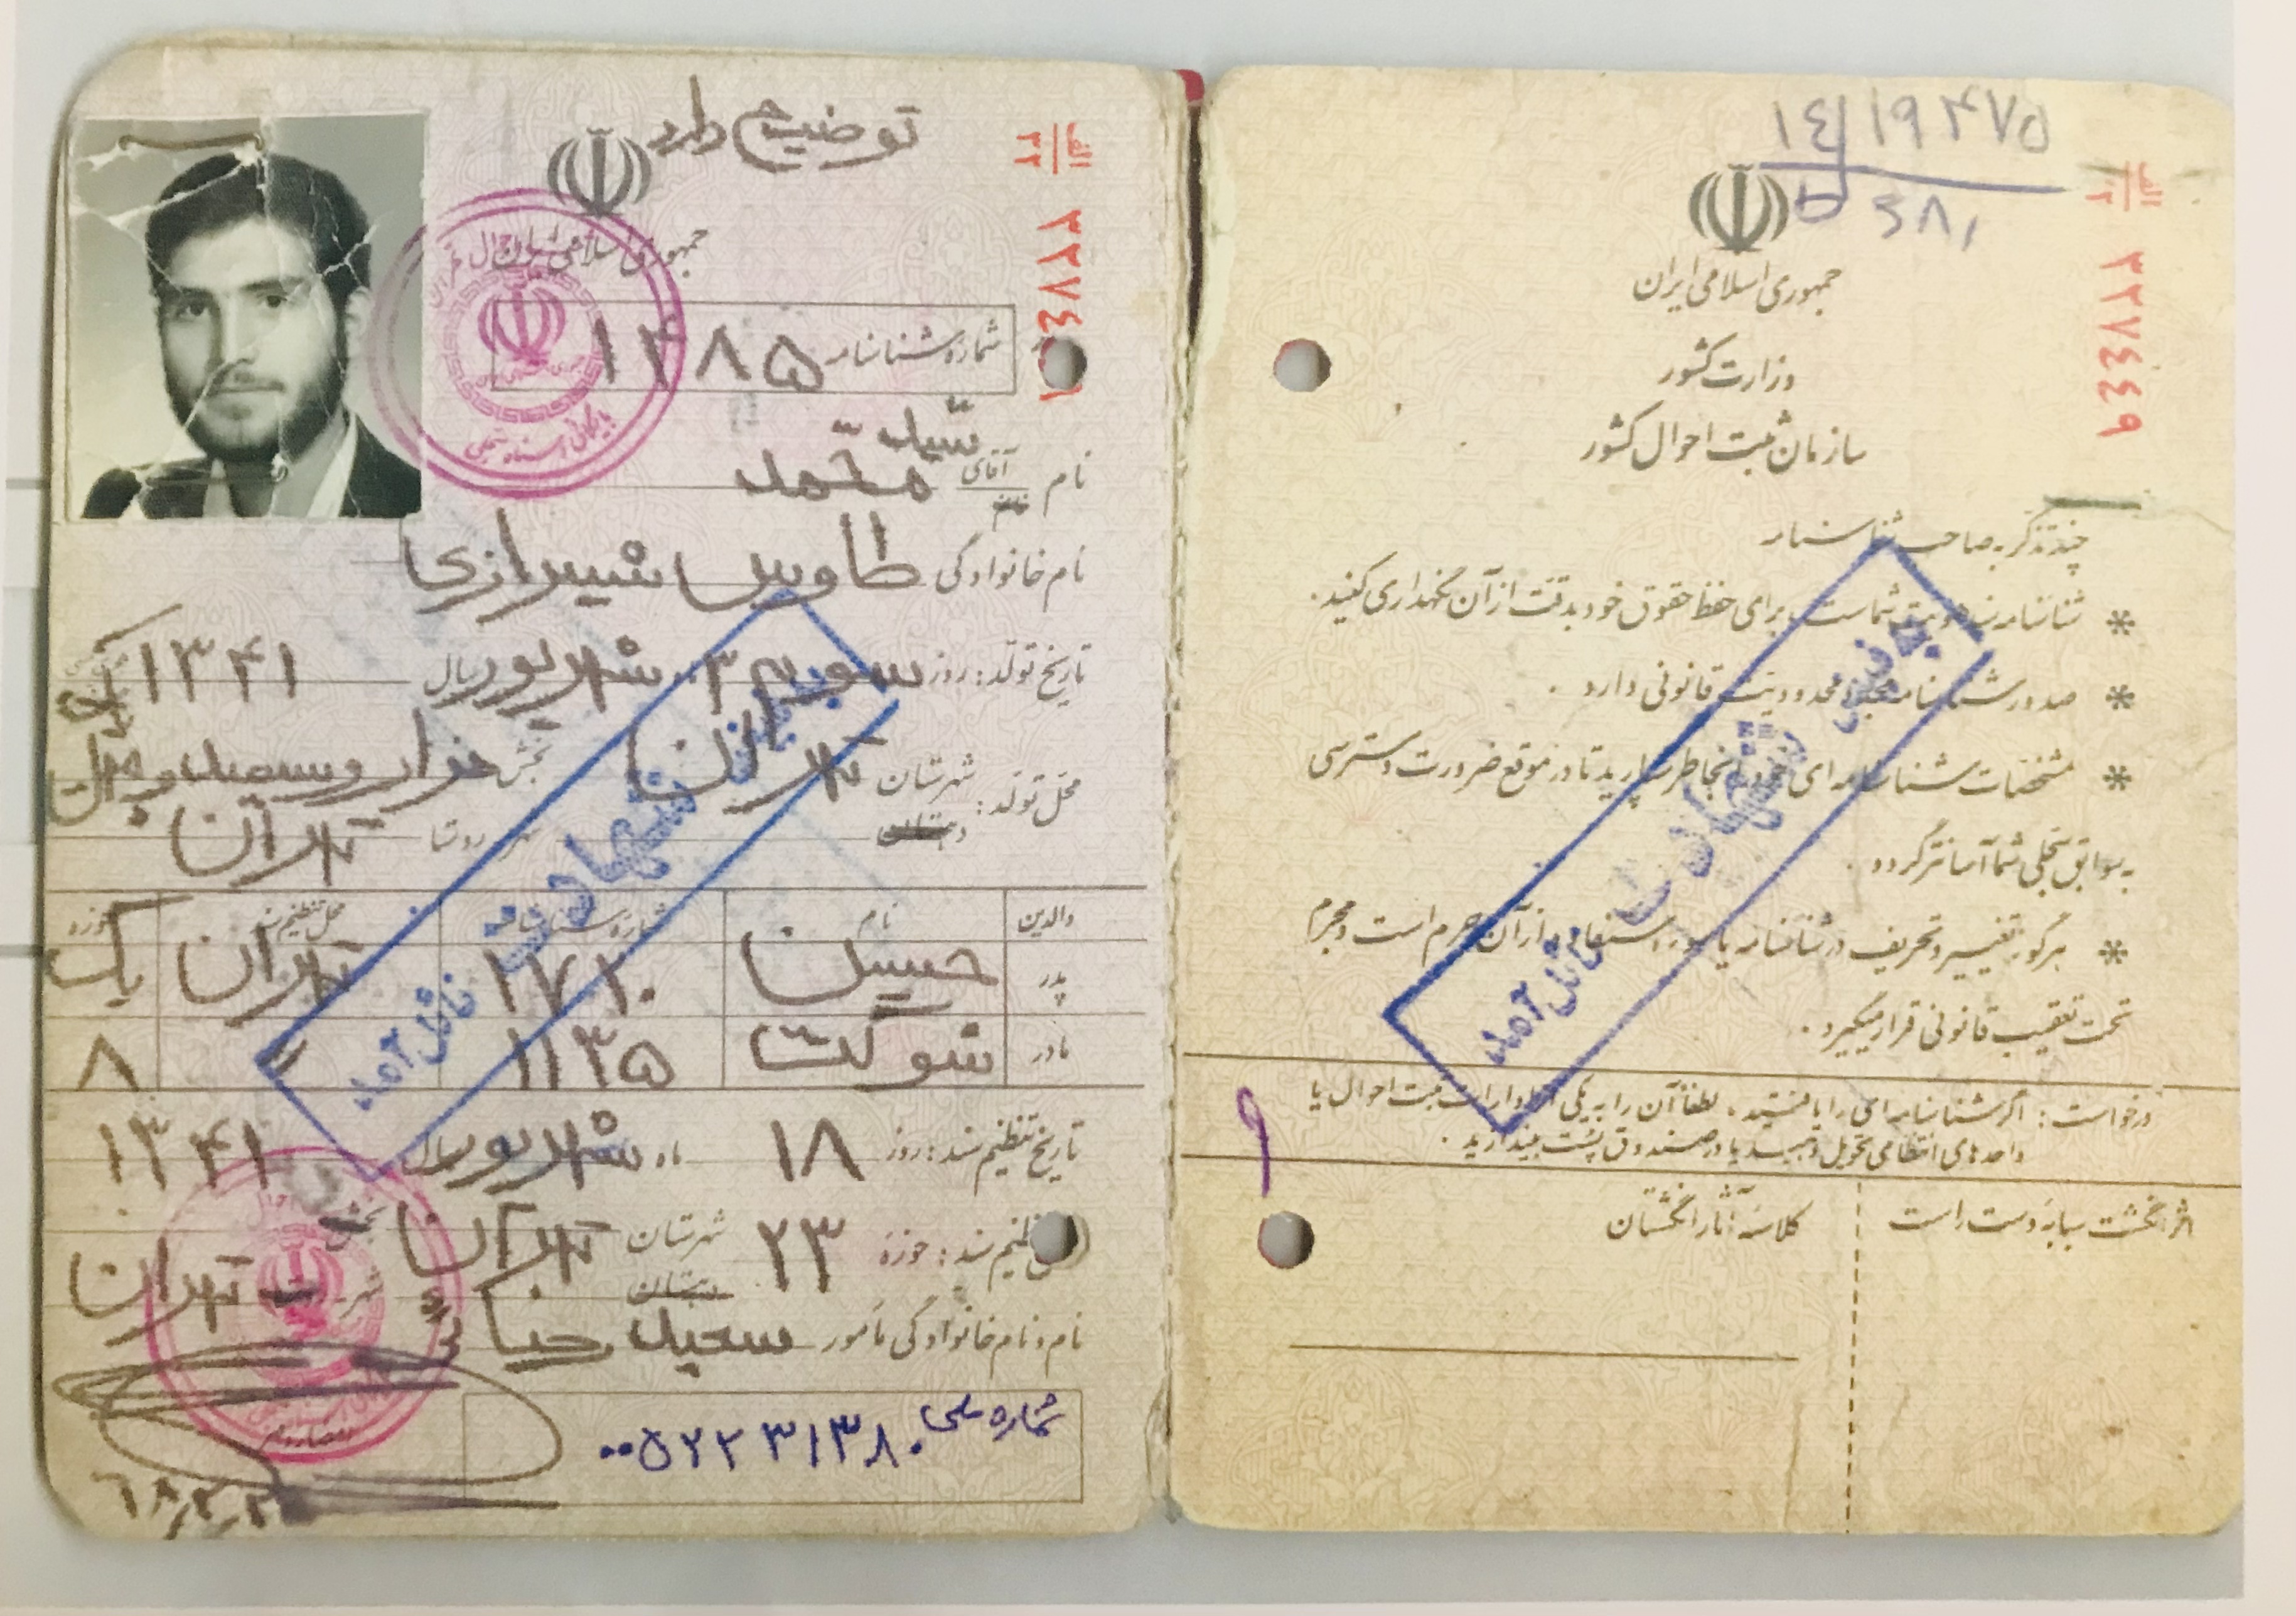 ۱۴ ۱۹۴۷۵
ط ۶۸۱
الف
۳۲۷۴۴۴۹
جمهوری اسلامی ایران
وزارت کشور
سازمان ثبت احوال کشور
چند تذکر به صاحب شناسنامه
* شناسنامه سند هویت شماست برای حفظ حقوق خود بدقت از آن نگهداری کنید.
* صدور شناسنامه مجدد محدودیت قانونی دارد.
* مشخصات شناسنامه ای خود را بخاطر بسپارید تا در موقع ضرورت دسترسی
به سوابق سجلی شما آسانتر گردد.
* هرگونه تغییر و تحریف در شناسنامه یا سوء استفاده از آن جرم است و مجرم
تحت تعقیب قانونی قرار میگیرد.
درخواست: اگر شناسنامه ای را یافتید، لطفاً آن را به یکی از ادارات ثبت احوال یا
واحدهای انتظامی تحویل دهید یا در صندوق پست بیندازید.
اثر انگشت سبابه دست راست
کلاسه آثار انگشتان
شهادت نائل آمد
توضیح دارد
الف
۳۲
۳۲۷۴
جمهوری اسلامی ایران
شماره شناسنامه ۱۴۸۵
بایگانی اسناد سجلی
نام آقای خانم سید محمد
نام خانوادگی طاوس شیرازی
تاریخ تولد: روز سوم ۳ شهریور سال ۱۳۴۱
محل تولد: شهرستان تهران بخش
دهستان شهر روستا تهران
والدین نام شماره شناسنامه محل تنظیم سند حوزه
پدر حسین ۱۷۲۰ تهران یک
مادر شوکت ۱۱۳۵ " ۸
تاریخ تنظیم سند: روز ۱۸ ماه شهریور سال ۱۳۴۱
تنظیم سند: حوزه ۲۳ شهرستان تهران بخش
دهستان شهر تهران
نام و نام خانوادگی مأمور سعید
شماره ملی ۰۰۵۲۲۳۱۳۸۰
شهادت نائل آمد